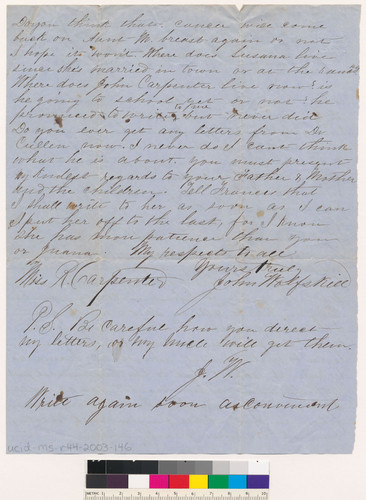 Do you think that cancer will come
back on Aunt M. breast again or not
I hope its wont. Where does Susana live
since she's married in town or at the
Where does John Carpenter live now is
he going to school yet or not he
promised to write to me but never did
Do you ever get any letters from Dr
Cullen now. I never do I cant think
what he is about. you must present
my kindest regards to your Father & Mother
and the children. Tell Frances that
I shall write to her as soon as I can
I put her off to the last, for I know
she has more patience than you
or My respects to all
Yours truly
Miss R. Carpenter John Wolfskill
P.S. Be careful how you direct
my letters, or my Uncle will get them.
J. W.
Write again soon as convenient
ucid-ms-r44-2003-146